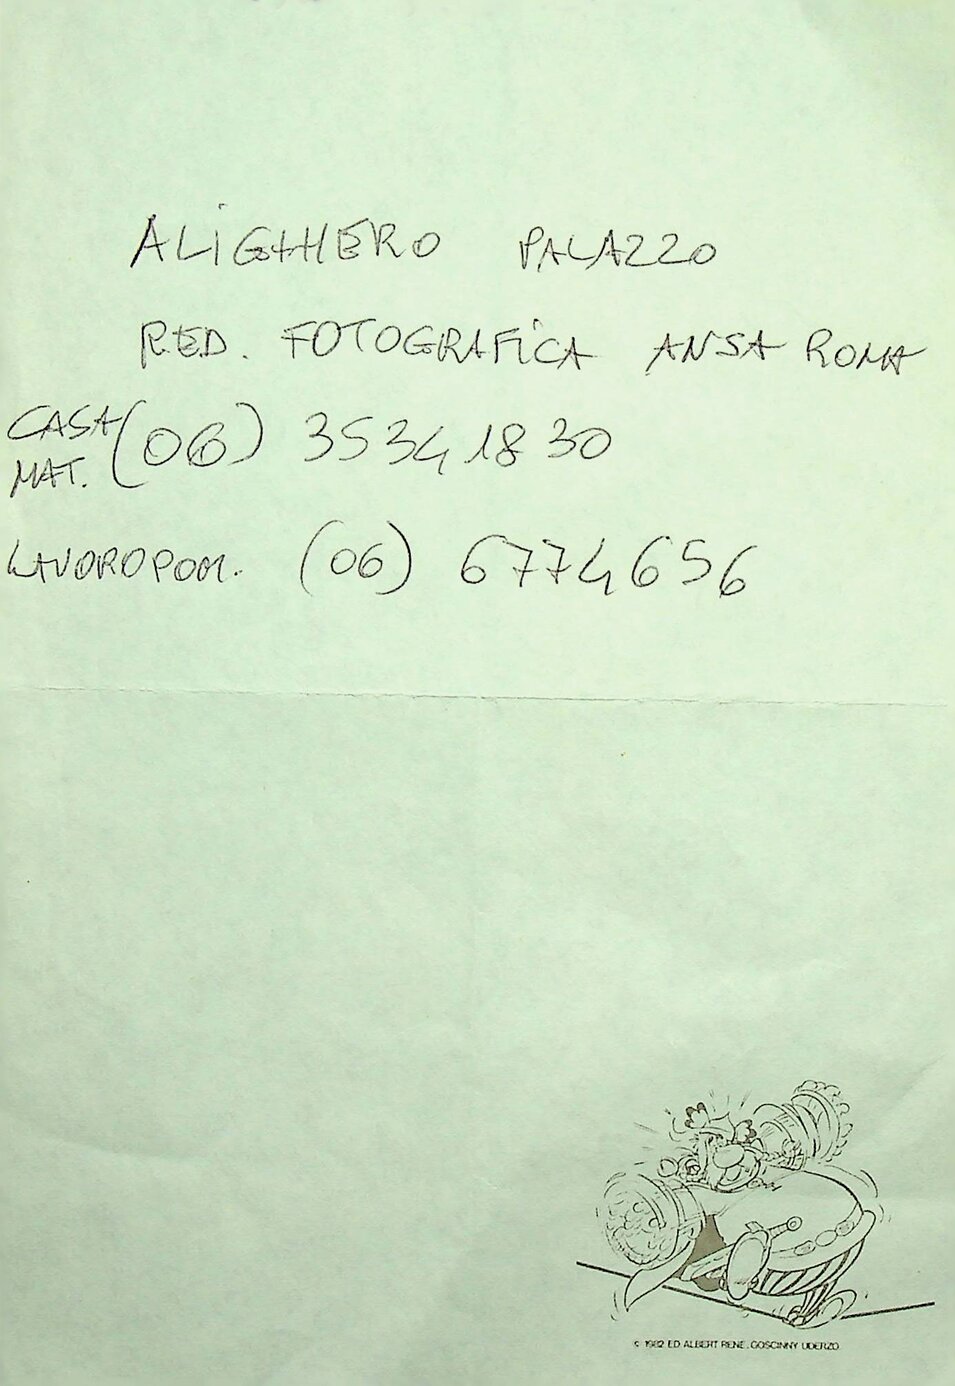 ALiGHERO PALAZZO
RED. FOTOGRAFiCA ANSA ROMA
CASA MAT. (06) 35341830
LAVORO POM. (06) 6774656
© 1982 ED. ALBERT RENE, GOSCINNY UDERZO